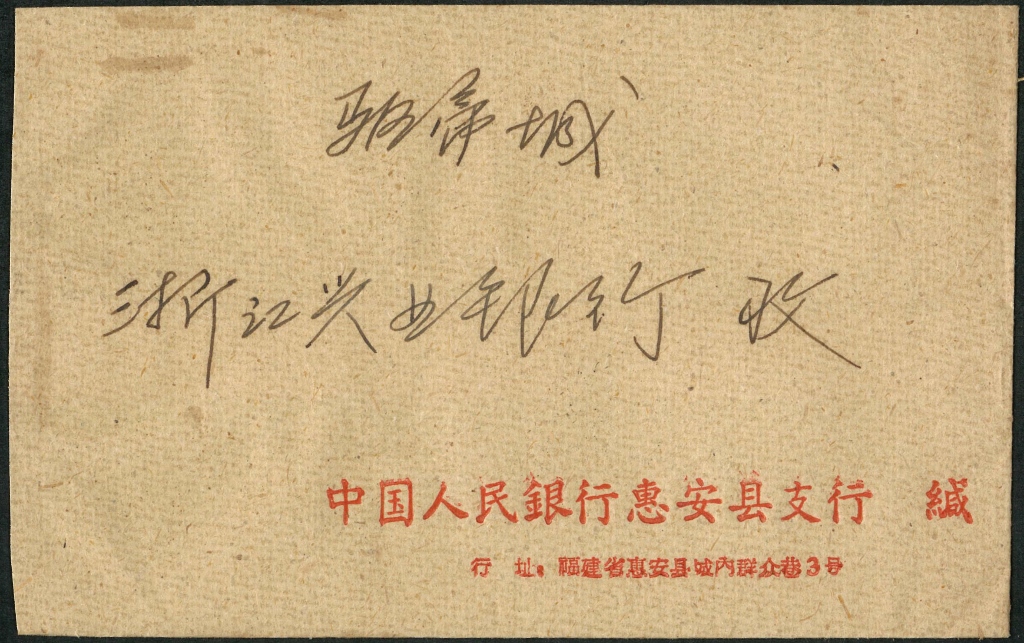 骆 城
浙江兴业银行 收
中国人民銀行惠安县支行 緘
行 址：福建省惠安县城内群众巷3号